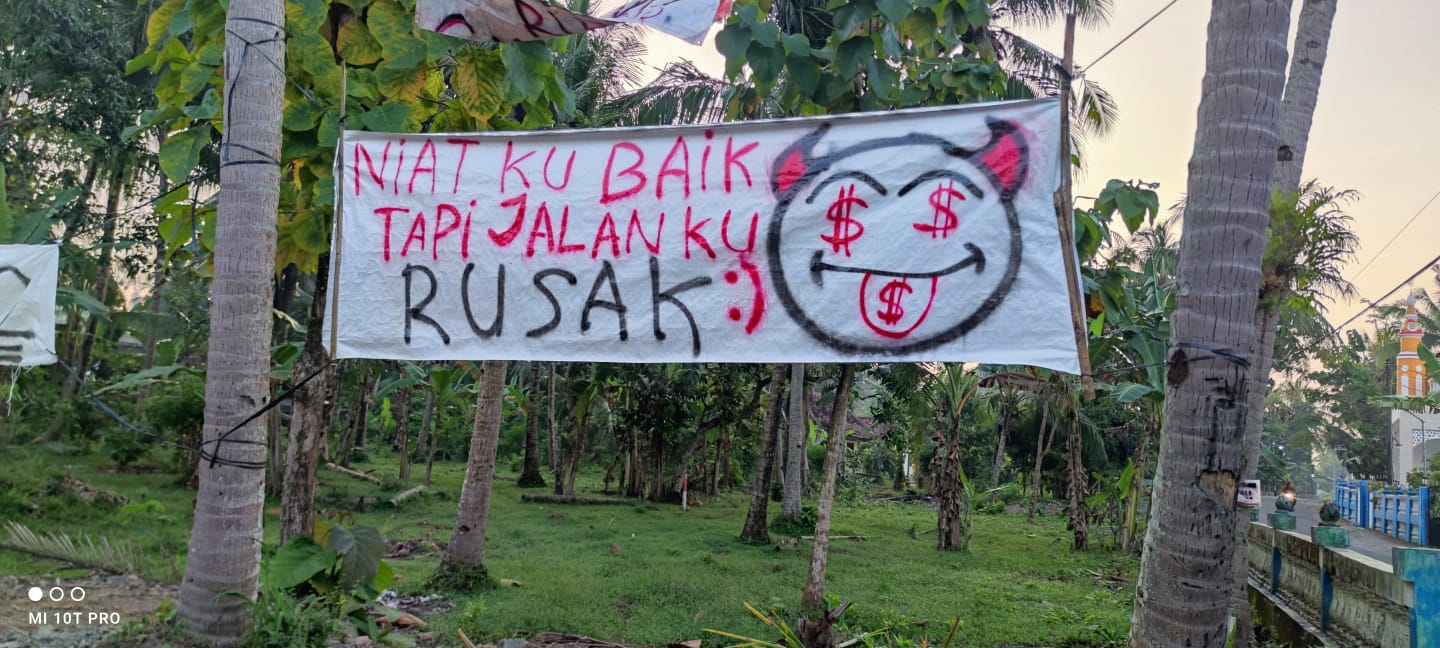 NiAT KU BAiK
TAPi JALAN KU
RUSAK :)
$ $
$
MI 10T PRO